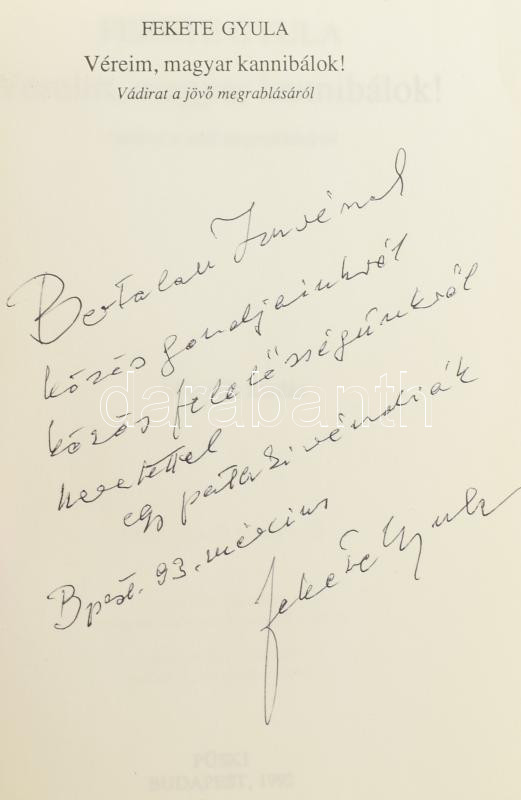 FEKETE GYULA
Véreim, magyar kannibálok!
Vádirat a jövő megrablásáról
Bertalan Imrénének
közös gondjainkról
közös felelősségünkről
szeretettel
egy pataki véndiák
Bpest. 93. március
Fekete Gyula
darabanth
PÜSKI
BUDAPEST, 1992